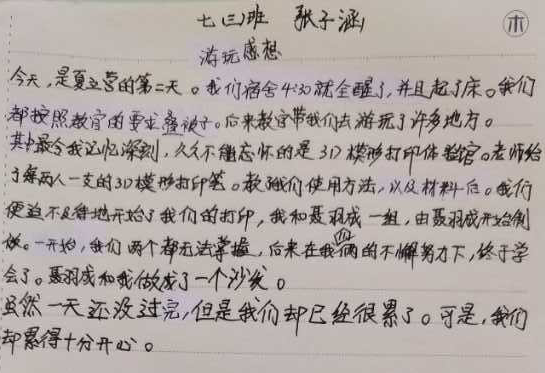 七(三)班 张子涵
木
游玩感想
今天,是夏立营的第二天。我们宿舍4:30就全醒了,并且起了床。我们
都按照教官的要求叠被子。后来教官带我们去游玩了许多地方。
其中最令我记忆深刻,久久不能忘怀的是3D模形打印体验馆。老师给
了每两人一支的3D模形打印笔。教我们使用方法,以及材料后。我们
便迫不及待地开始了我们的打印,我和聂羽成一组,由聂羽成开始制
做。一开始,我们两个都无法掌握,后来在我俩的不懈努力下,终于学
会了。聂羽成和我做成了一个沙发。
虽然一天还没过完,但是我们却已经很累了。可是,我们
却累得十分开心。